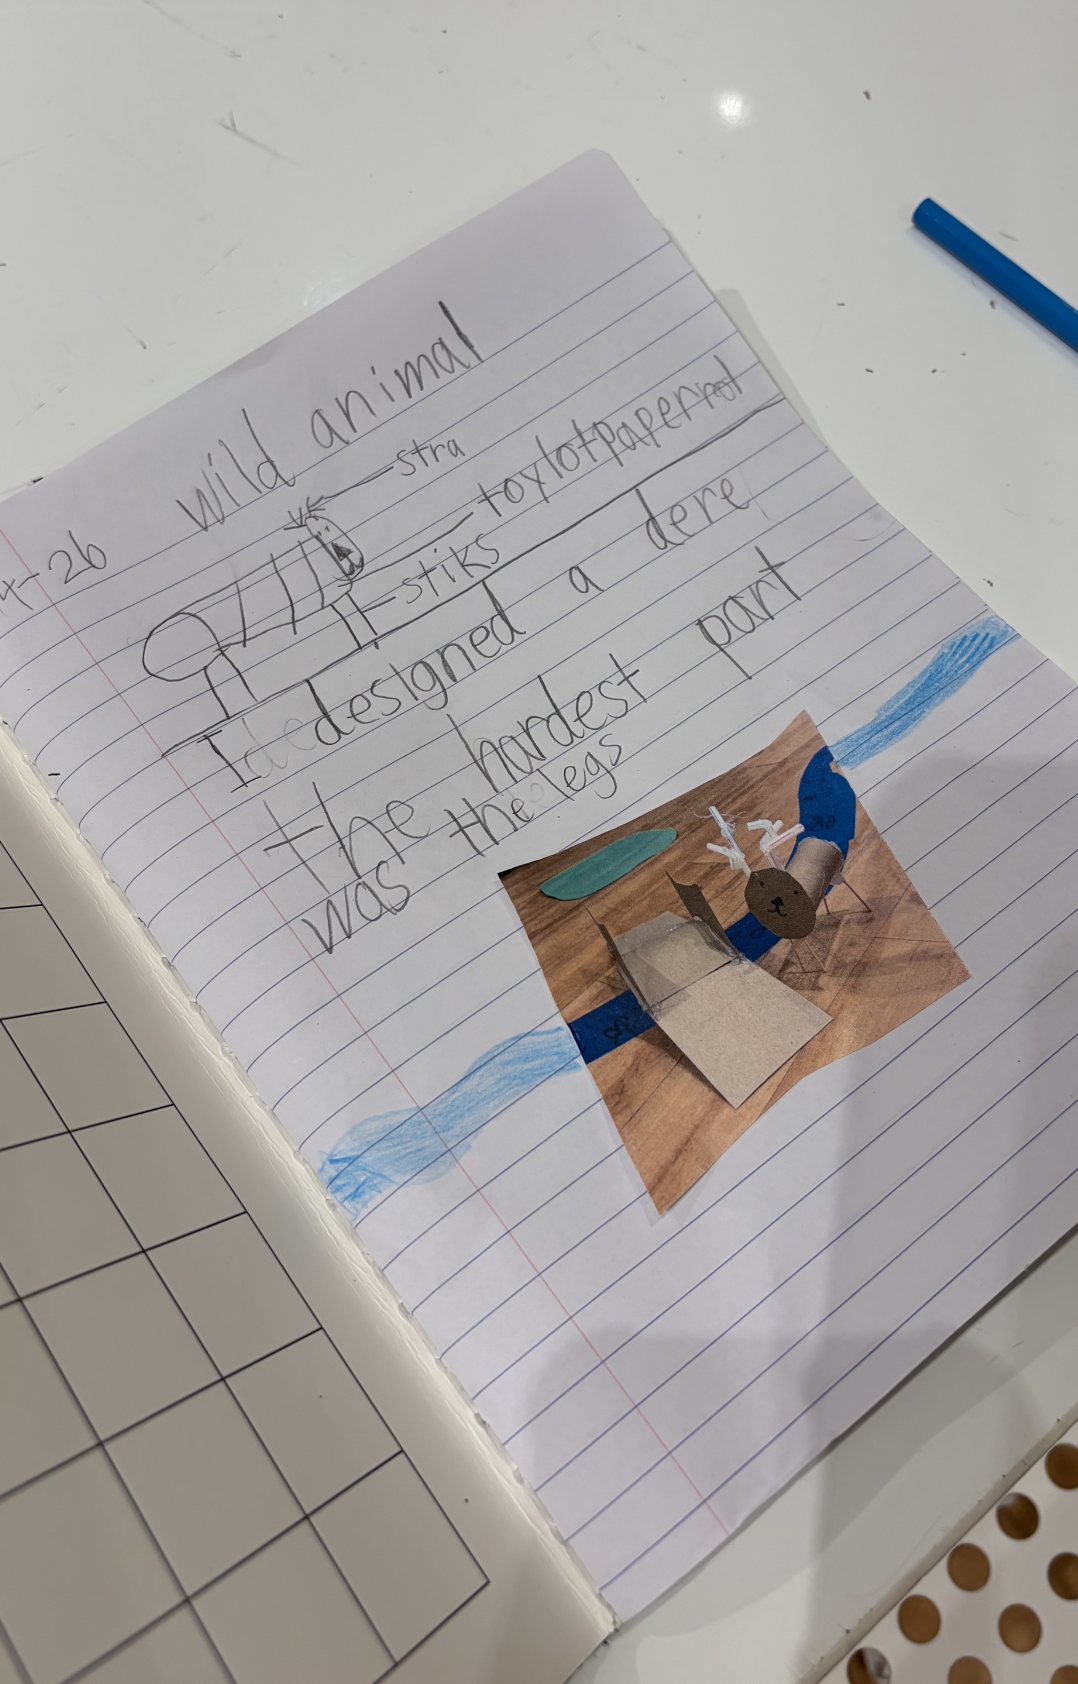 wild animal
4-26
stra
toylotpaperrol
stiks
I designed a dere
the hardest part
was the legs